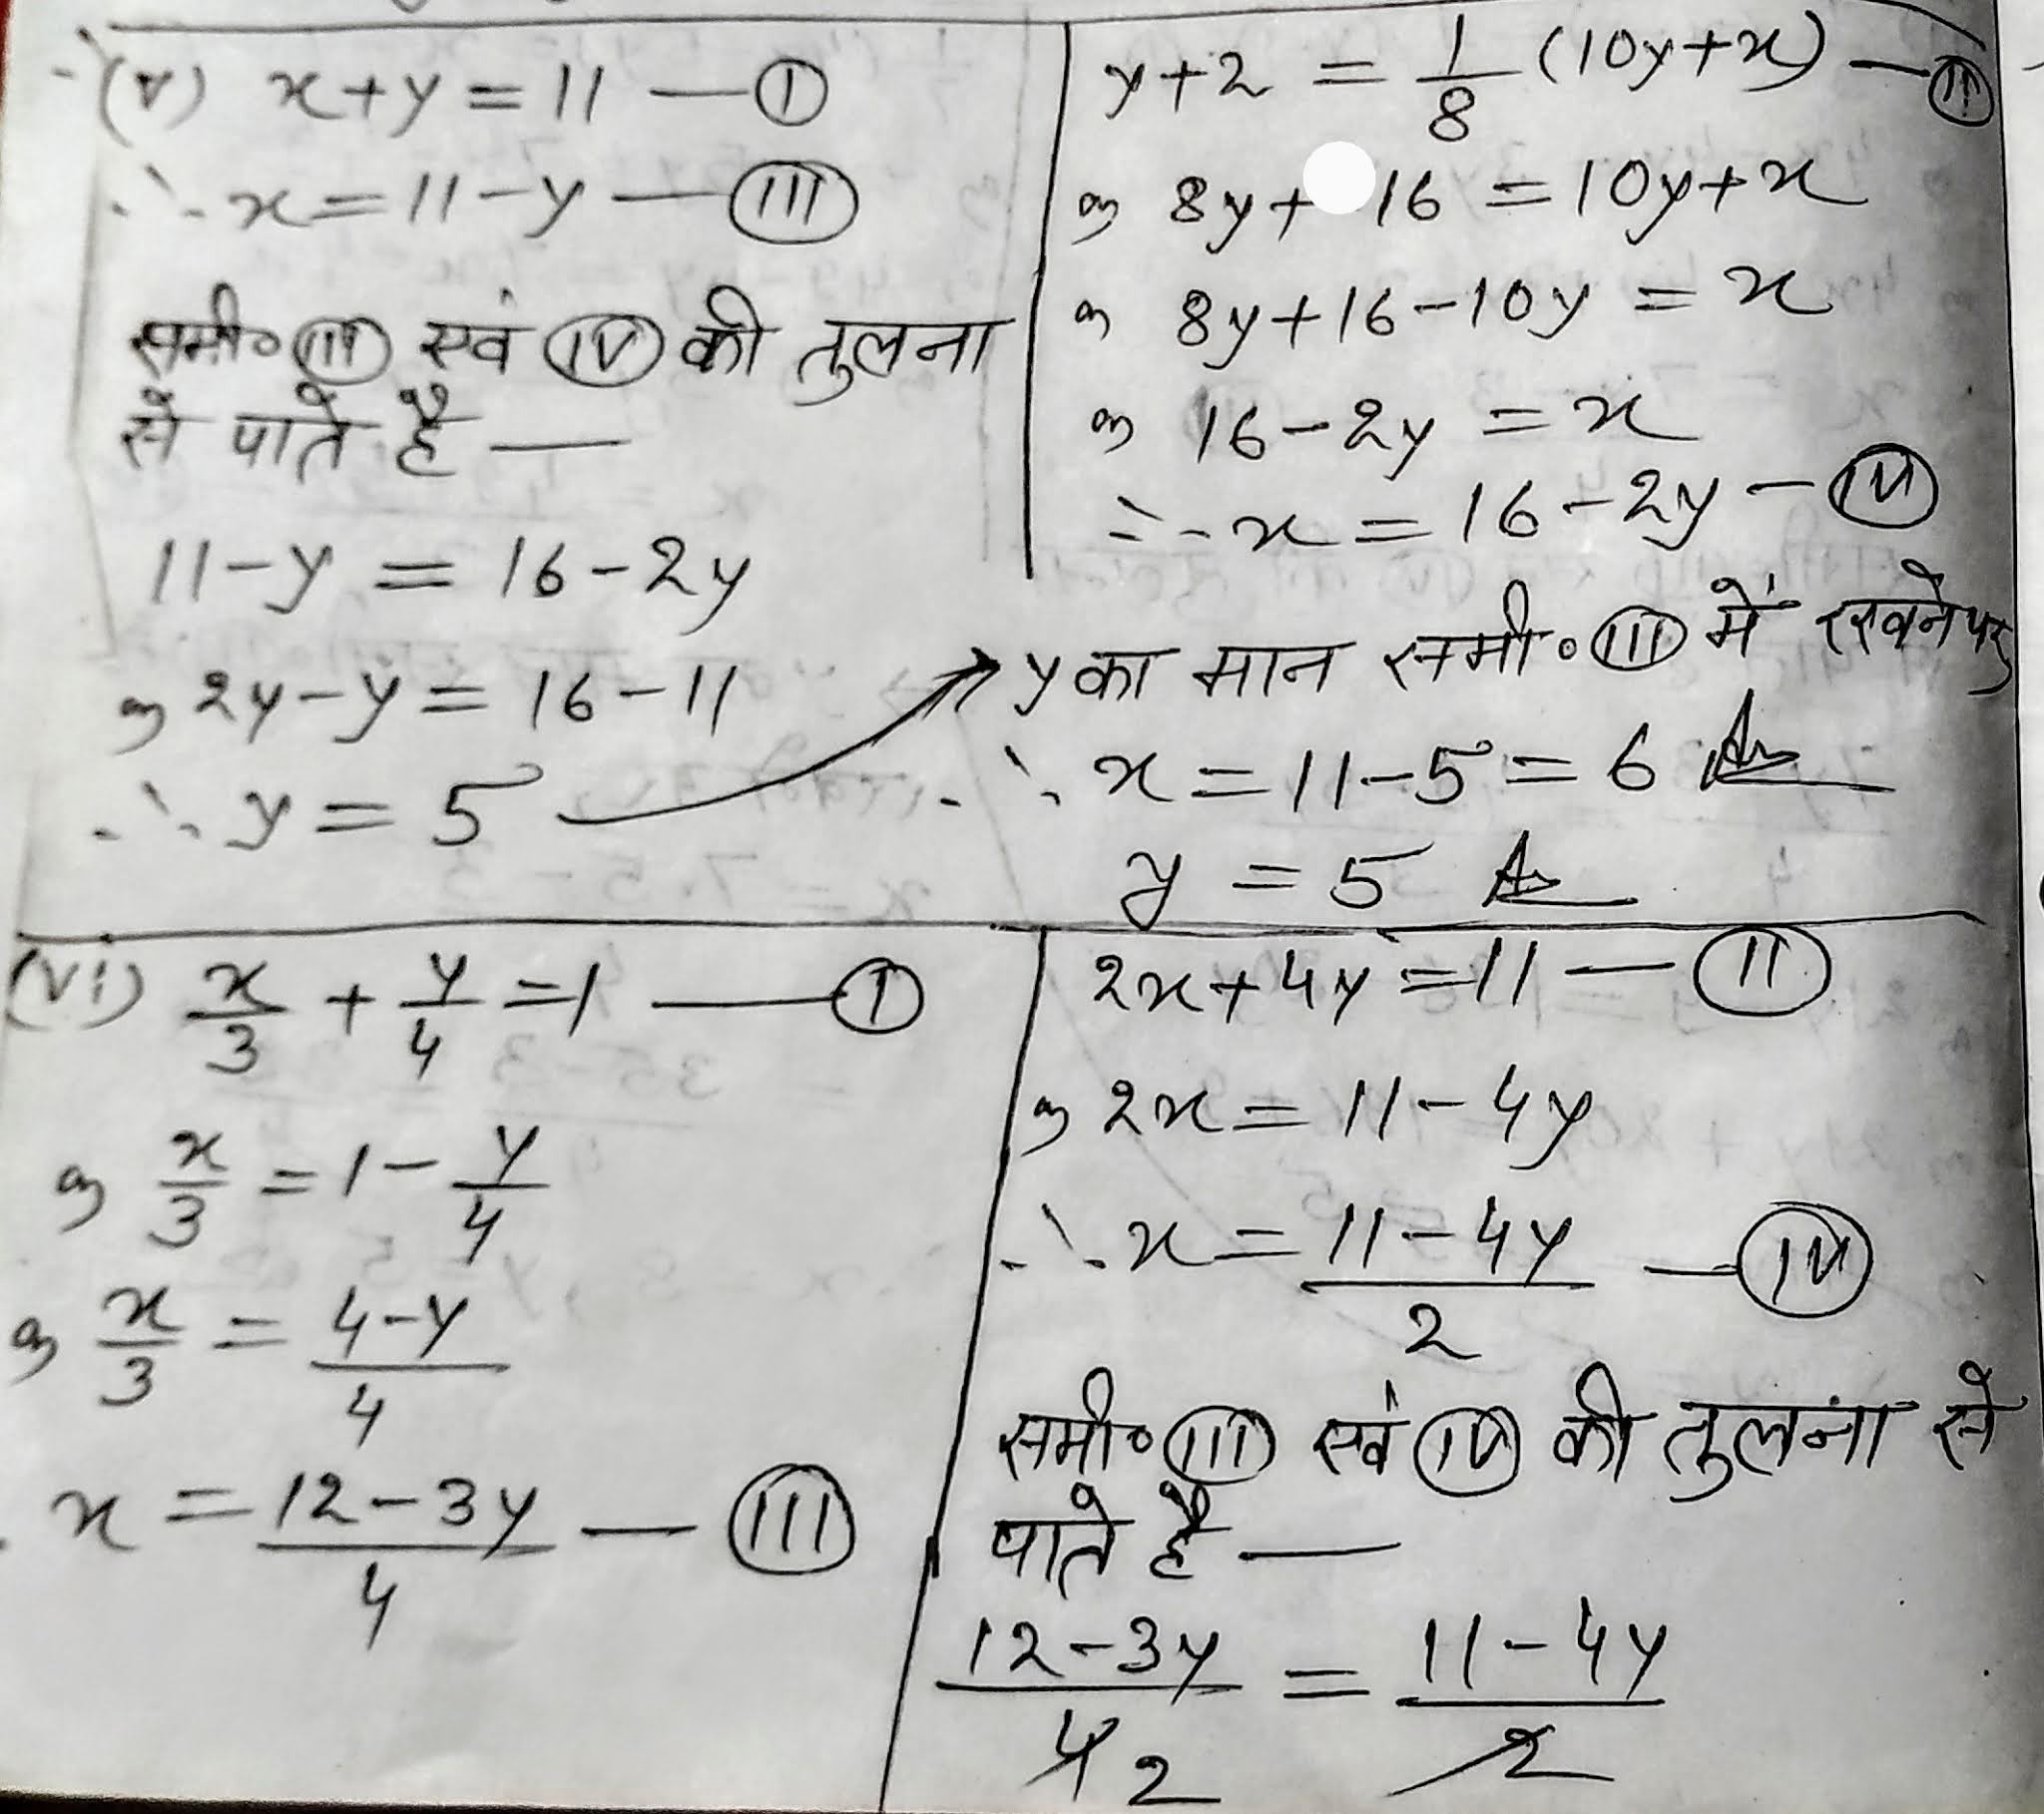 (v) x+y=11 —(I)
∴ x=11-y —(III)
समी० (III) एवं (IV) की तुलना
से पाते है —
11-y = 16-2y
या 2y-y = 16-11
∴ y = 5
y+2 = 1/8 (10y+x) —(II)
या 8y+ 16 = 10y+x
या 8y+16-10y = x
या 16-2y = x
∴ x = 16-2y —(IV)
y का मान समी० (III) में रखने पर
∴ x = 11-5 = 6 Ans
y = 5 Ans
(vi) x/3 + y/4 = 1 —(I)
या x/3 = 1 - y/4
या x/3 = 4-y/4
x = 12-3y/4 —(III)
2x+4y = 11 —(II)
या 2x = 11-4y
∴ x = 11-4y/2 —(IV)
समी० (III) एवं (IV) की तुलना से
पाते है —
12-3y/4 2 = 11-4y/2